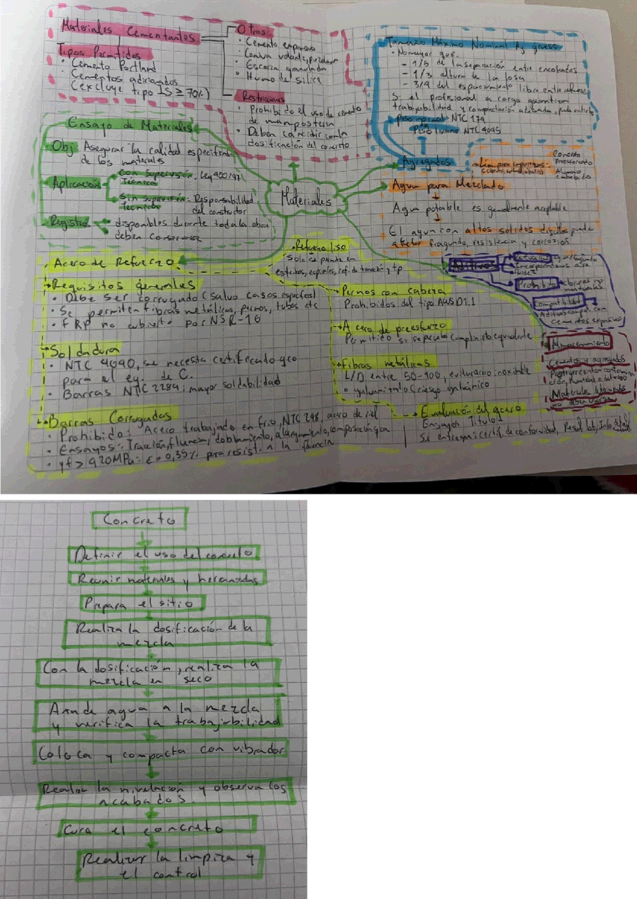 Materiales Cementantes
Tipos Permitidos
• Cemento Portland
• Cementos adicionados
(excluye tipo IS ≥ 70%)
Otros
• Cemento expansivo
• Ceniza volante, puzolana
• Escoria granulada
• Humo de sílice
Restricciones
• Prohibido el uso de cemento
de mampostería
• Deben coincidir con la
dosificación del concreto
Tamaño Máximo Nominal Ag grueso
- No mayor que:
- 1/5 de la separación entre encofrados
- 1/3 altura de la losa
- 3/4 del espaciamiento libre entre
Si el profesional a cargo garantiza
trabajabilidad y compactación adecuada, puede
Peso normal NTC 174
Peso liviano NTC 4045
Agregados
Concreto
Preesforzado
Ensayo de Materiales
Obj: Asegurar la calidad especificada
de los materiales
Aplicación
Con Supervisión: Ley 400/97
Técnica
Sin supervisión: Responsabilidad
Técnica del constructor
Registro
disponibles durante toda la obra
deben conservar
Materiales
Agua para Mezclado
Agua potable es generalmente aceptable
El agua con altos solidos disueltos puede
afectar fraguado, resistencia y corrosión
Acero de Refuerzo
Requisitos generales
• Debe ser corrugado (salvo casos específicos)
• Se permiten fibras metálicas, pernos, tubos etc
• FRP no cubierto por NSR-10
Soldadura
• NTC 4040, se necesita certificado
para el eq. de C.
• Barras NTC 2289: mayor soldabilidad
Barras Corrugadas
• Prohibido: Acero trabajado en frio, NTC 245, acero de riel
• Ensayos: Tracción, fluencia, doblamiento, alargamiento, composición qca
• yf > 420MPa: ε = 0,35% para resist. a la fluencia
Refuerzo liso
Solo se permite en
estribos, espirales, ref. de tensión y tp
Pernos con cabeza
Prohibidos del tipo AWS D1.1
Acero de preesfuerzo
Permitido si se
Fibras metálicas
L/D entre 50-100, evitar uso inoxidable
galvanizado (riesgo galvánico)
Evaluación del acero
Ensayos Titulo I
Se entregan: certif de conformidad, Result lab,
Aditivos
Prohibido
Compatibilidad
Cementos expansivos
Almacenamiento
Cementos y agregados
Proteger de contaminación,
Concreto
Definir el uso del concreto
Reunir materiales y herramientas
Prepara el sitio
Realiza la dosificación de la
mezcla
Con la dosificación, realiza la
mezcla en seco
Añade agua a la mezcla
y verifica la trabajabilidad
Coloca y compacta con vibrador
Realiza la nivelación y observa los
acabados.
Cura el concreto
Realizar la limpiza y
el control